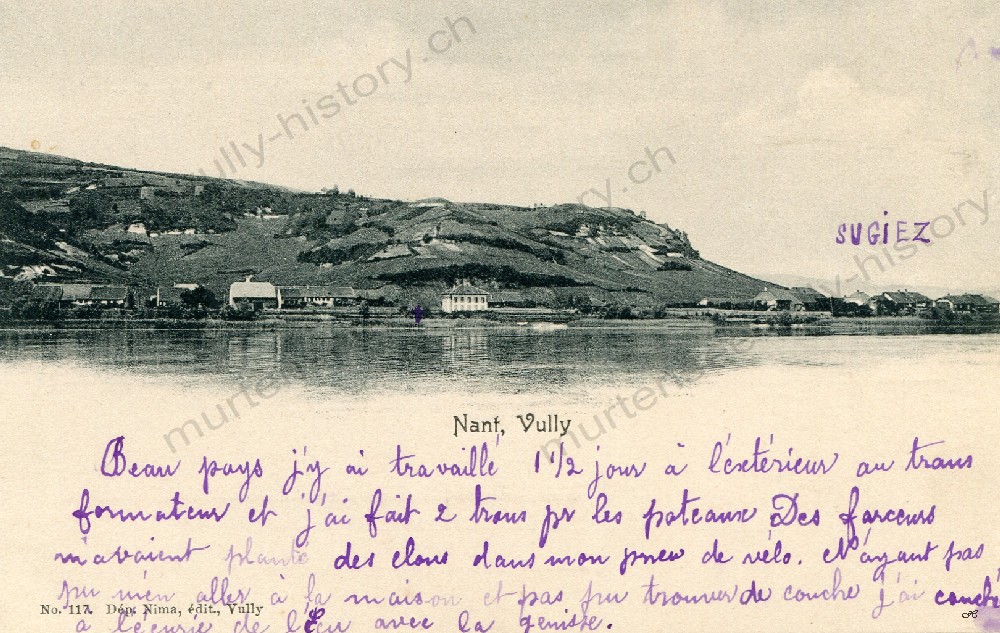 murten-vully-history.ch
murten-vully-history.ch
SUGIEZ
Nant, Vully
Beau pays j'y ai travaillé 1 1/2 jour à l'extérieur au trans
formateur et j'ai fait 2 trous pr les poteaux Des farceurs
m'avaient planté des clous dans mon pneu de vélo. N'ayant pas
pu m'en aller à la maison et pas pu trouver de couche j'ai couché
No. 117. Dép. Nima, édit., Vully
à l'écurie de l'Ecu avec la génisse.